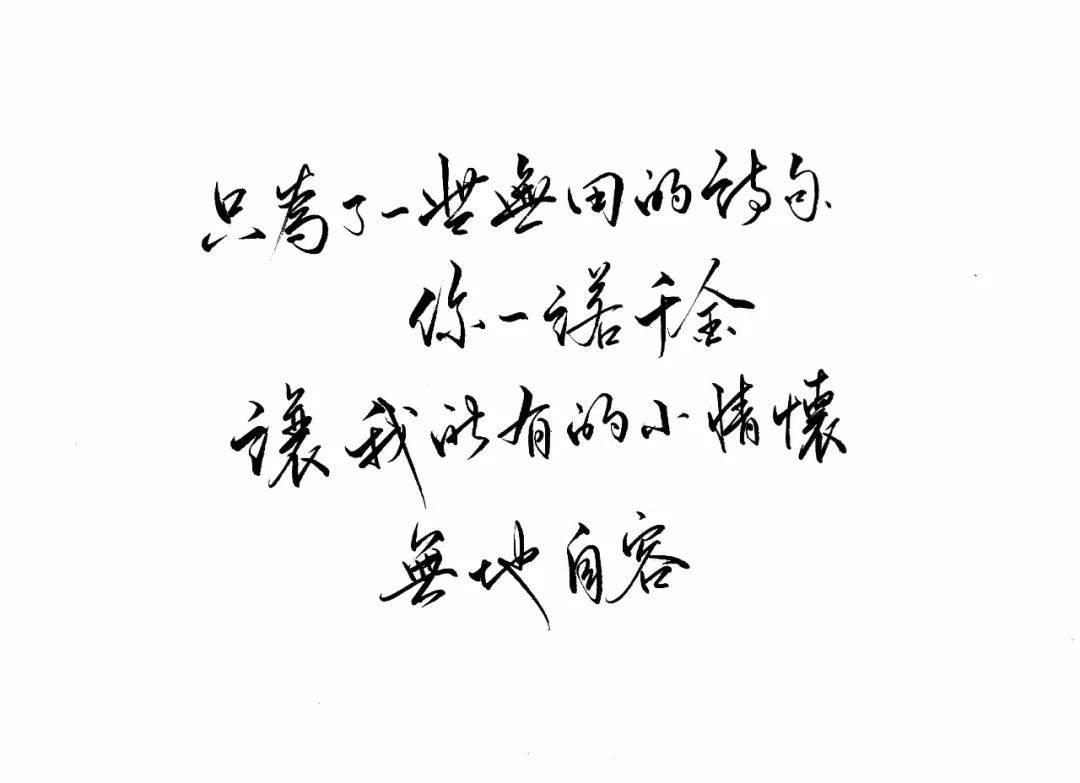 只為了一些無用的詩句
你一諾千金
讓我所有的小情懷
無地自容